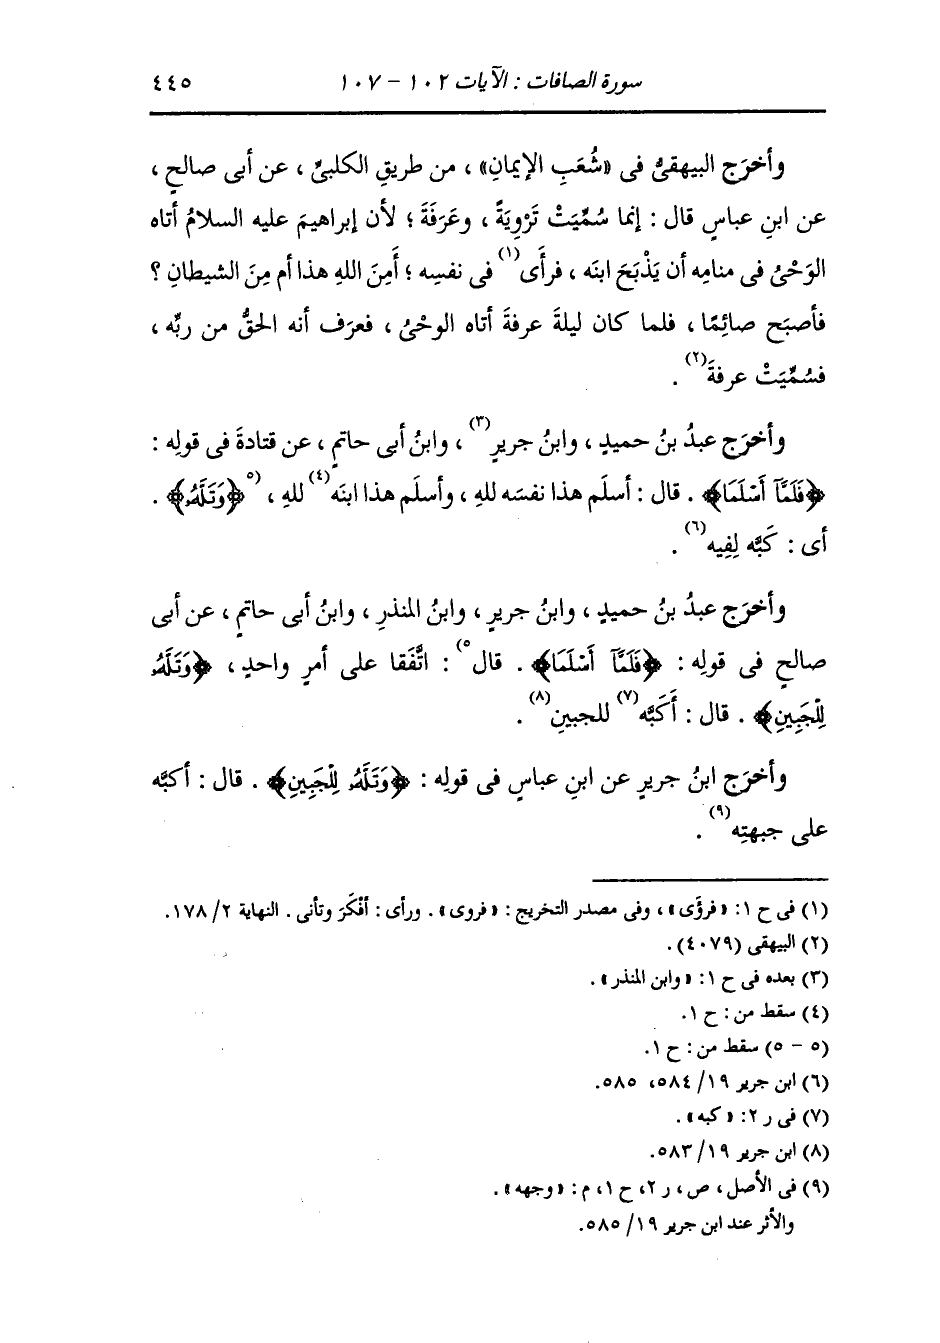 سورة الصافات : الآيات ١٠٢ - ١٠٧ ٤٤٥
وأخرَج البيهقىُّ فى «شُعَبِ الإيمانِ» ، من طريقِ الكلبىِّ ، عن أبى صالحٍ ،
عن ابنِ عباسٍ قال : إنما سُمِّيَتْ تَرْوِيَةً ، وعَرَفَةَ ؛ لأن إبراهيمَ عليه السلامُ أتاه
الوَحْىُ فى منامِه أن يَذْبَحَ ابنَه ، فرأَى(١) فى نفسِه ؛ أَمِنَ اللهِ هذا أم مِنَ الشيطانِ ؟
فأصبَح صائِمًا ، فلما كان ليلةَ عرفةَ أتاه الوحْىُ ، فعرَف أنه الحَقُّ من ربِّه ،
فسُمِّيَتْ عرفةَ(٢) .
وأخرَج عبدُ بنُ حميدٍ ، وابنُ جريرٍ(٣) ، وابنُ أبى حاتمٍ ، عن قتادةَ فى قولِه :
﴿فَلَمَّآ أَسْلَمَا﴾ . قال : أسلَم هذا نفسَه للهِ ، وأسلَم هذا ابنَه(٤) للهِ ، (٥﴿وَتَلَّهُۥ﴾ .
أى : كَبَّه لِفِيه(٦) .
وأخرَج عبدُ بنُ حميدٍ ، وابنُ جريرٍ ، وابنُ المنذرِ ، وابنُ أبى حاتمٍ ، عن أبى
صالحٍ فى قولِه : ﴿فَلَمَّآ أَسْلَمَا﴾ . قال٥) : اتَّفَقا على أمرٍ واحدٍ ، ﴿وَتَلَّهُۥ
لِلْجَبِينِ﴾ . قال : أَكَبَّه(٧) للجبينِ(٨) .
وأخرَج ابنُ جريرٍ عن ابنِ عباسٍ فى قولِه : ﴿وَتَلَّهُۥ لِلْجَبِينِ﴾ . قال : أكبَّه
على جبهتِه(٩) .
(١) فى ح ١: «فرؤَى» ، وفى مصدر التخريج : «فروى» . ورأى : أفْكَرَ وتأنى . النهاية ٢/ ١٧٨.
(٢) البيهقى (٤٠٧٩) .
(٣) بعده فى ح ١: «وابن المنذر» .
(٤) سقط من : ح ١.
(٥ - ٥) سقط من : ح ١.
(٦) ابن جرير ١٩/ ٥٨٤، ٥٨٥.
(٧) فى ر ٢: «كبه» .
(٨) ابن جرير ١٩/ ٥٨٣.
(٩) فى الأصل ، ص ، ر ٢، ح ١، م : «وجهه» .
والأثر عند ابن جرير ١٩/ ٥٨٥.